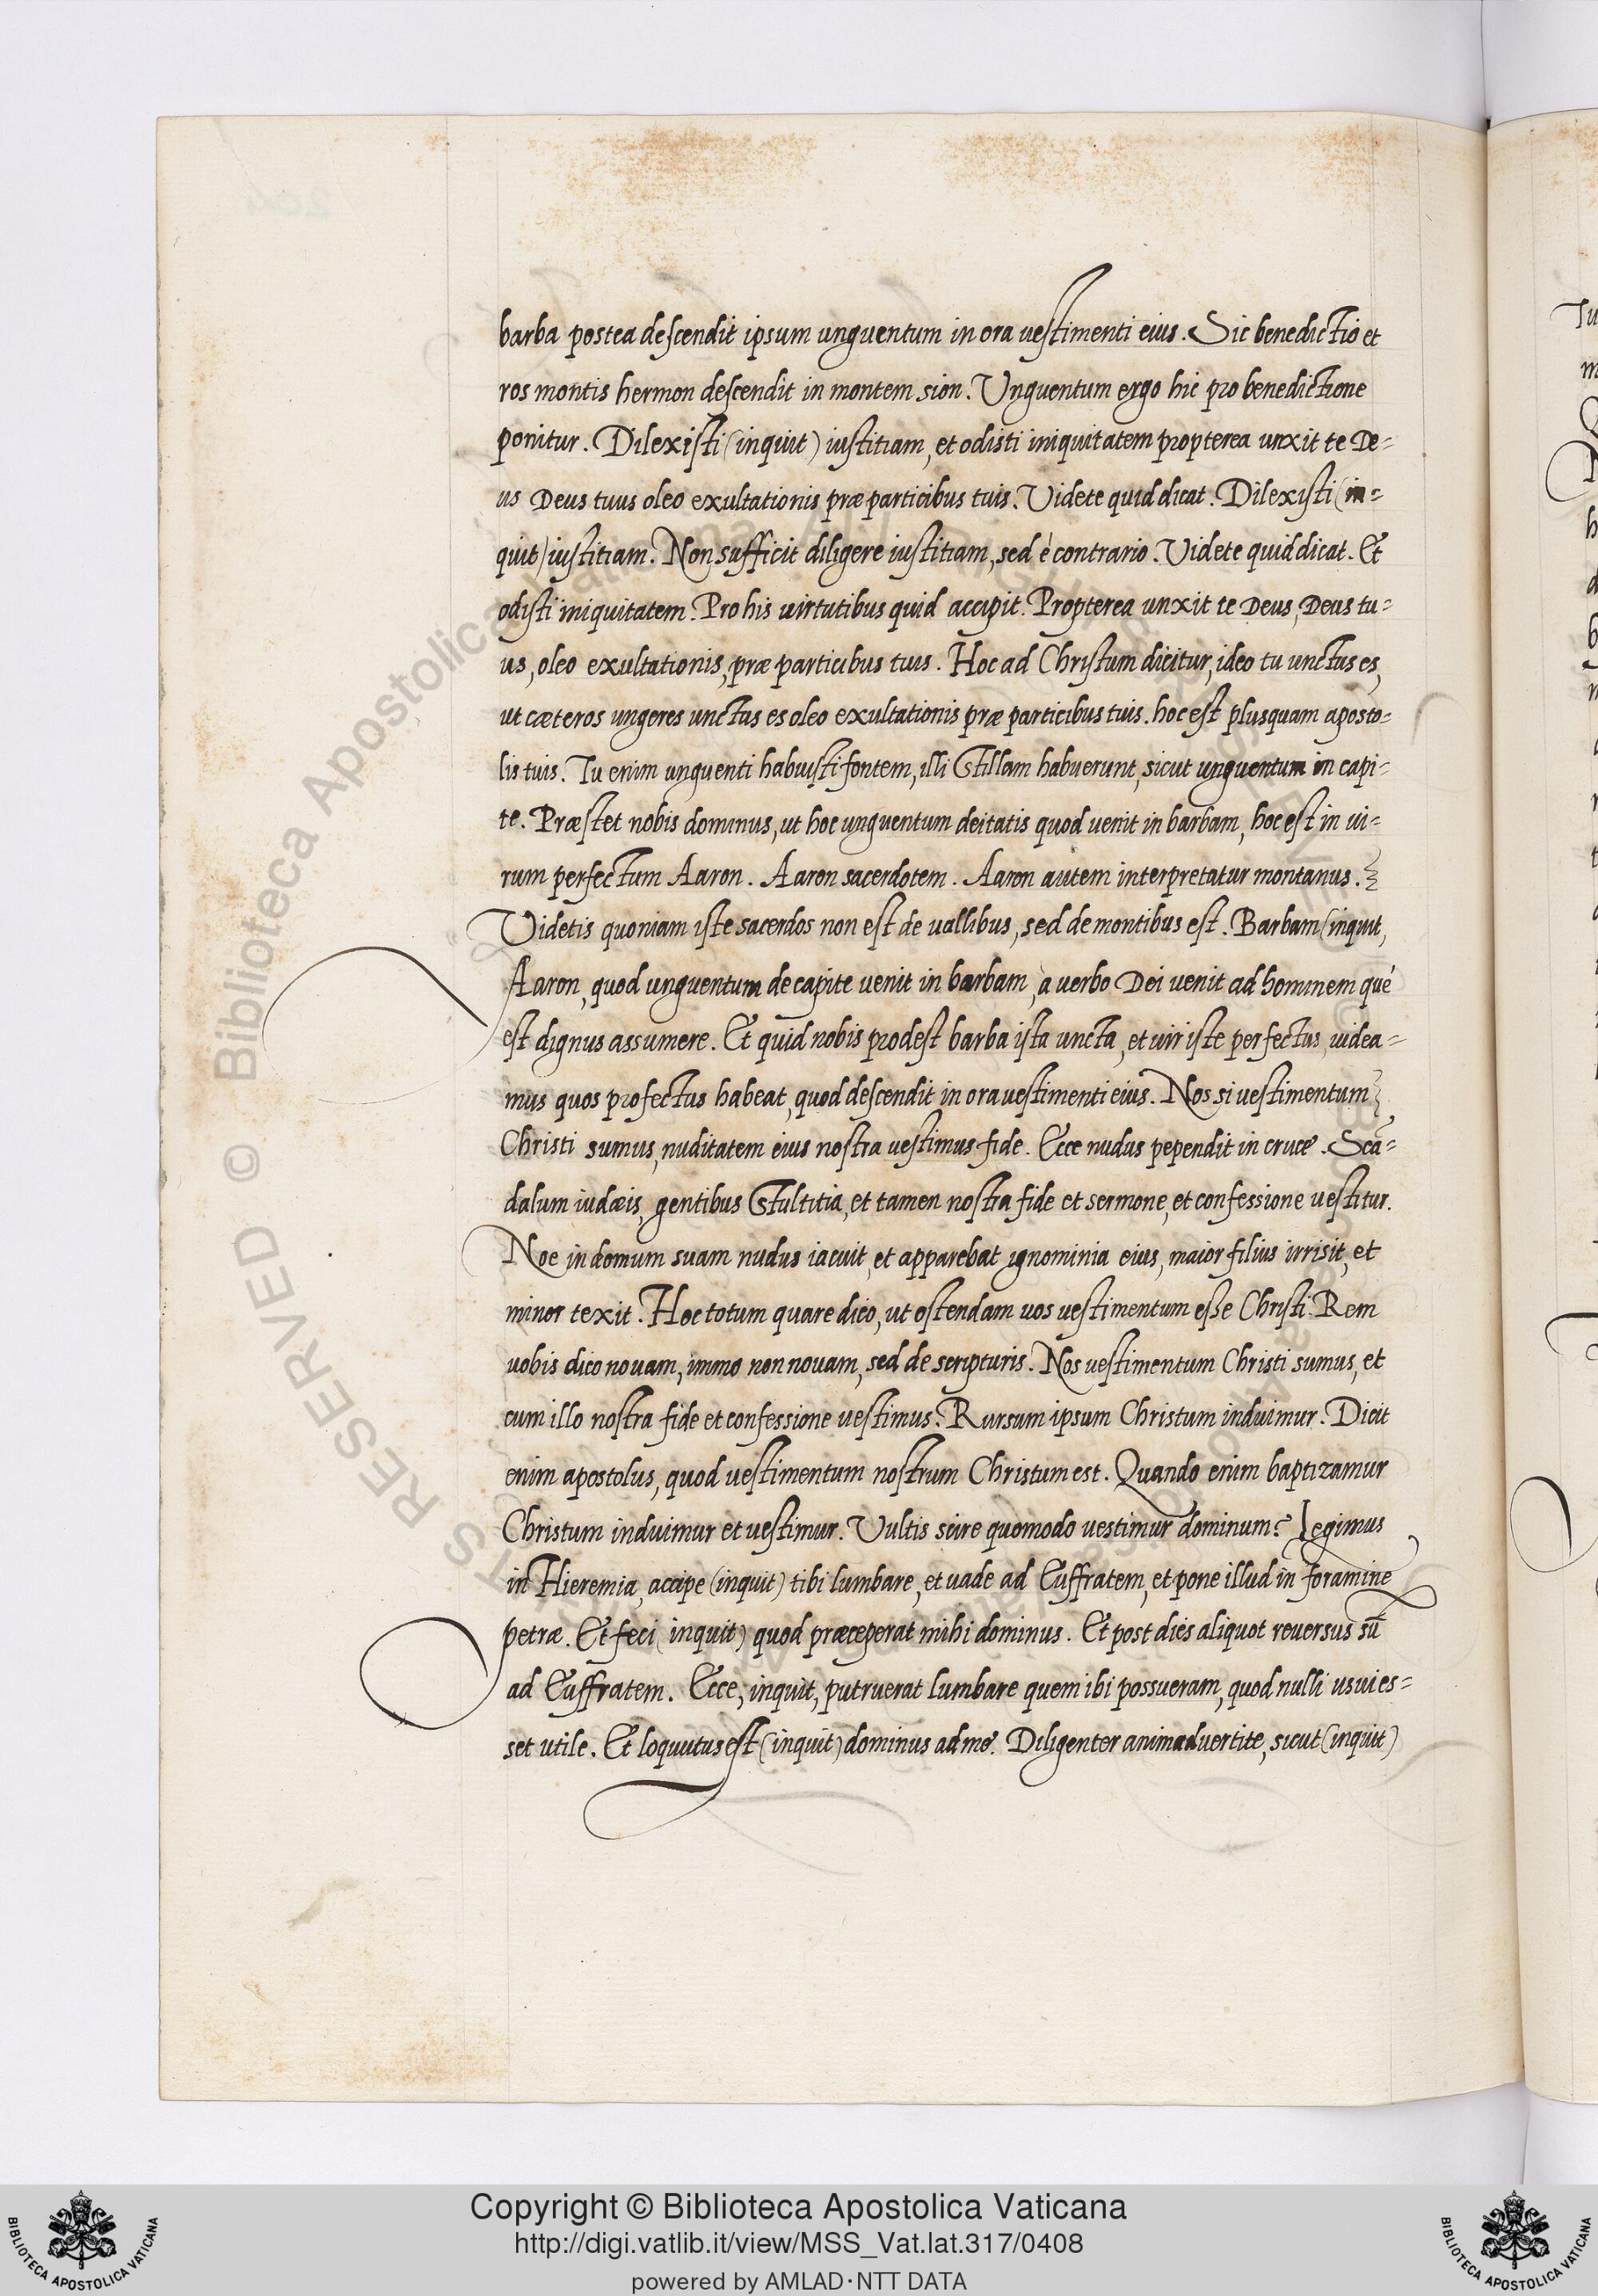 barba postea descendit ipsum unguentum in ora vestimenti eius. Sic benedictio et
ros montis hermon descendit in montem sion. Unguentum ergo hic pro benedictione
ponitur. Dilexisti (inquit) iustitiam, et odisti iniquitatem propterea unxit te De=
us Deus tuus oleo exultationis præ participibus tuis. Videte quid dicat. Dilexisti (in=
quit) iustitiam. Non sufficit diligere iustitiam, sed è contrario. Videte quid dicat. Et
odisti iniquitatem. Pro his virtutibus quid accipit. Propterea unxit te Deus, Deus tu=
us, oleo exultationis, præ participibus tuis. Hoc ad Christum dicitur, ideo tu unctus es,
ut cæteros ungeres unctus es oleo exultationis præ participibus tuis. hoc est plusquam aposto=
lis tuis. Tu enim unguenti habuisti fontem, illi Stillam habuerunt, sicut unguentum in capi=
te. Præstet nobis dominus, ut hoc unguentum deitatis quod venit in barbam, hoc est in vi=
rum perfectum Aaron. Aaron sacerdotem. Aaron autem interpretatur montanus.
Videtis quoniam iste sacerdos non est de vallibus, sed de montibus est. Barbam (inquit,
Aaron, quod unguentum de capite venit in barbam, a verbo Dei venit ad hominem què
est dignus assumere. Et quid nobis prodest barba ista uncta, et vir iste perfectus, videa=
mus quos profectus habeat, quod descendit in ora vestimenti eius. Nos si vestimentum
Christi sumus, nuditatem eius nostra vestimus fide. Ecce nudus pependit in cruce. Scā=
dalum iudæis, gentibus Stultitia, et tamen nostra fide et sermone, et confessione vestitur.
Noe in domum suam nudus iacuit, et apparebat ignominia eius, maior filius irrisit, et
minor texit. Hoc totum quare dico, ut ostendam vos vestimentum esse Christi. Rem
vobis dico novam, immo non novam, sed de scripturis. Nos vestimentum Christi sumus, et
cum illo nostra fide et confessione vestimus. Rursum ipsum Christum induimur. Dicit
enim apostolus, quod vestimentum nostrum Christum est. Quando enim baptizamur
Christum induimur et vestimur. Vultis scire quomodo vestimur dominum? Legimus
in Hieremia, accipe (inquit) tibi lumbare, et vade ad Euffratem, et pone illud in foramine
petræ. Et feci (inquit) quod præceperat mihi dominus. Et post dies aliquot reversus sū
ad Euffratem. Ecce, inquit, putruerat lumbare quem ibi possueram, quod nulli usui es=
set utile. Et loquutus est (inquit) dominus ad me. Diligenter animadvertite, sicut (inquit)
Copyright © Biblioteca Apostolica Vaticana
http://digi.vatlib.it/view/MSS_Vat.lat.317/0408
powered by AMLAD·NTT DATA